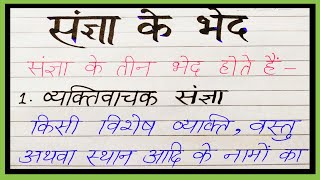 संज्ञा के भेद
संज्ञा के तीन भेद होते हैं -
1. व्यक्तिवाचक संज्ञा
किसी विशेष व्यक्ति, वस्तु
अथवा स्थान आदि के नामों का